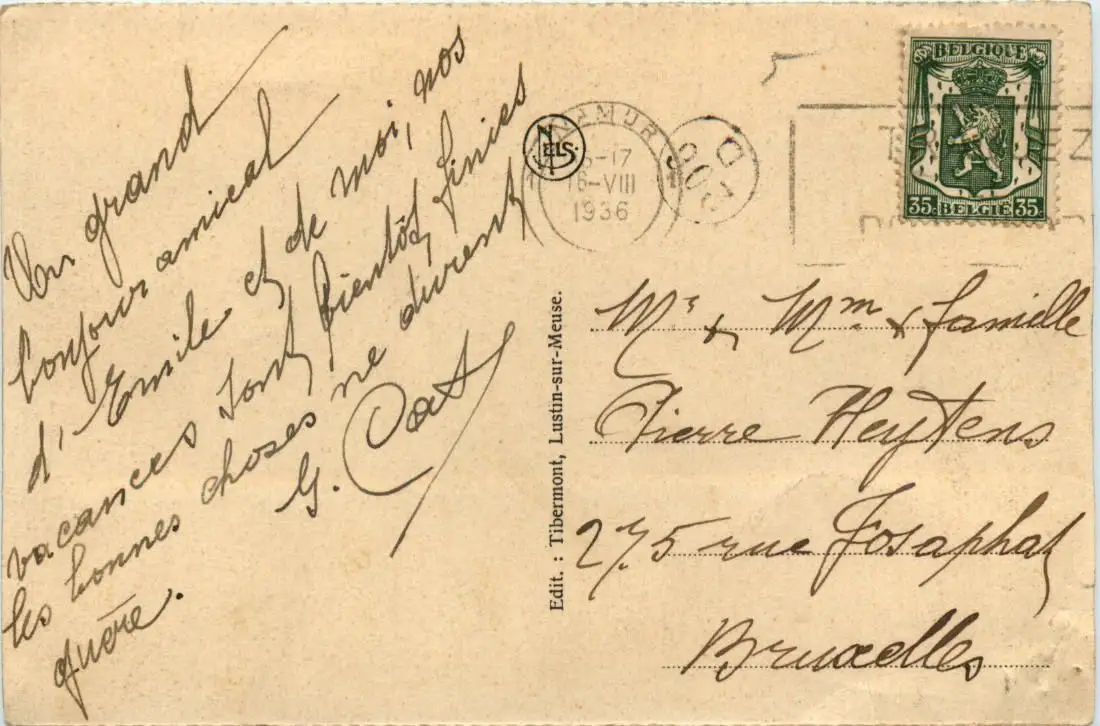 Un grand
bonjour amical
d'Emile et de moi, nos
vacances sont bientôt finies
les bonnes choses ne durent
guère.
G. Cat
NELS
Edit. : Tibermont, Lustin-sur-Meuse.
NAMUR
16-17
16-VIII
1936
BELGIQUE
35c BELGIË 35c
Mr & Mme & famille
Pierre Heytens
275 rue Josaphat
Bruxelles